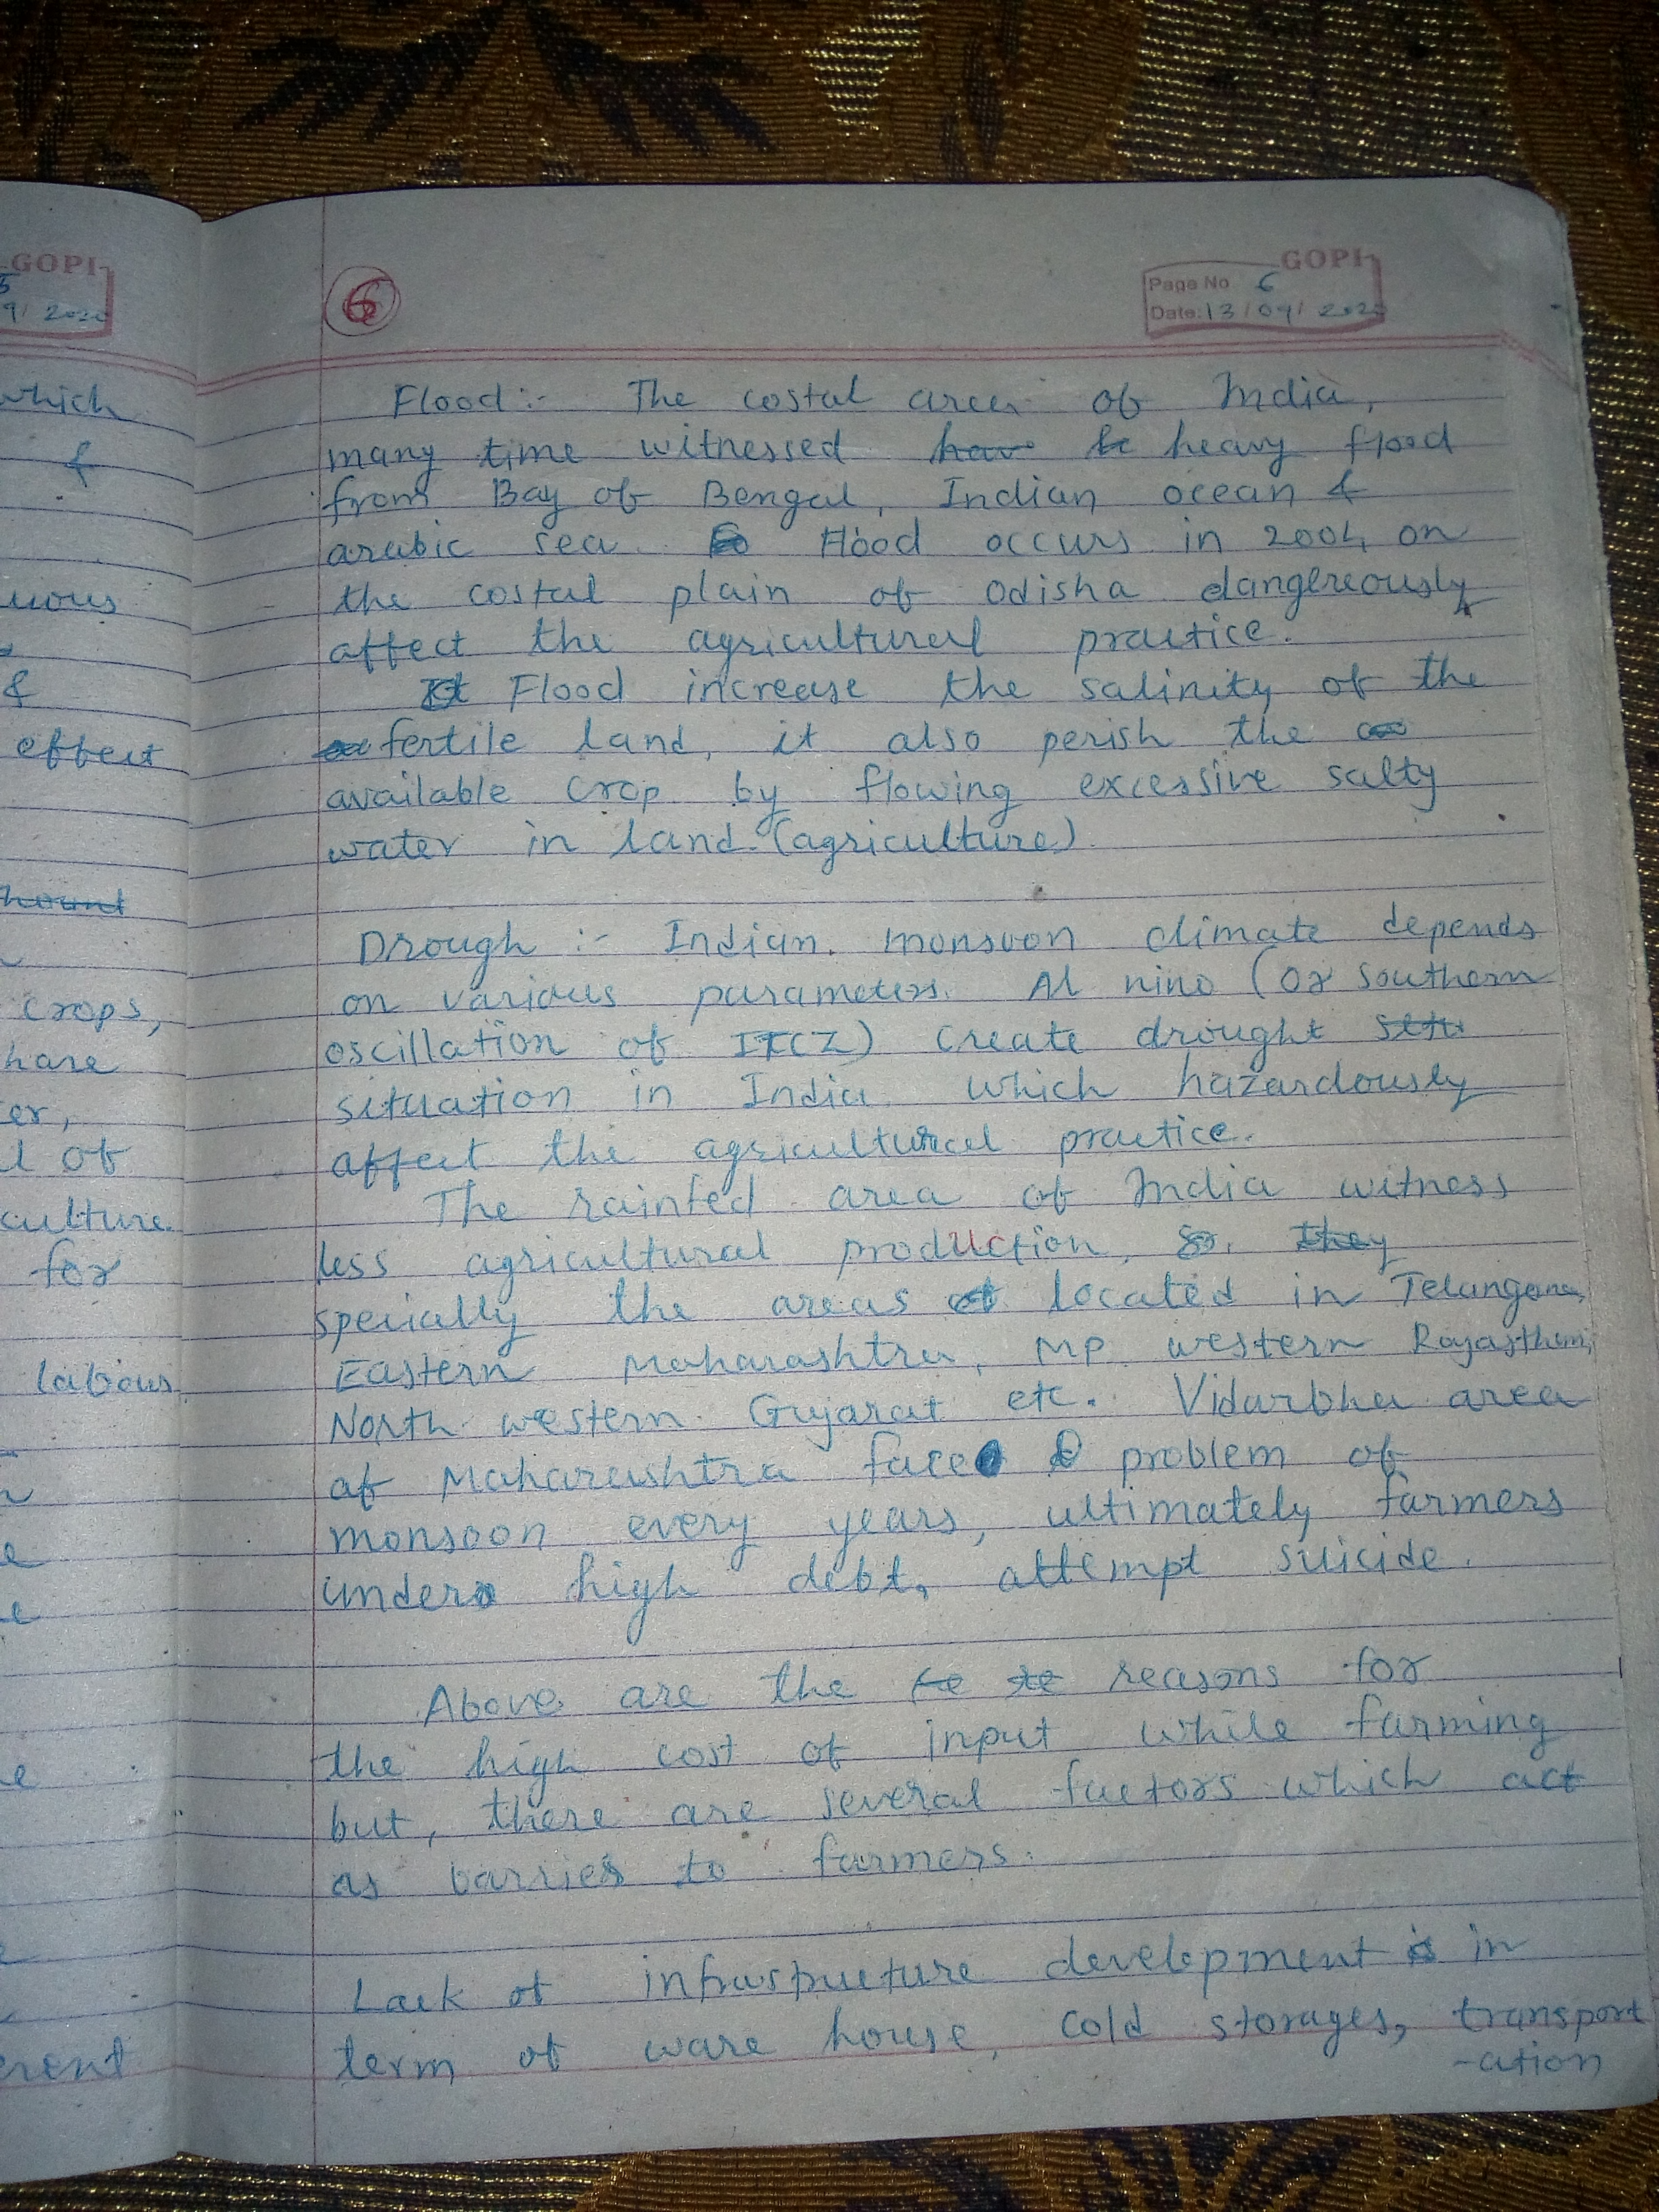 GOPI
9/ 2020
which
&
uous
&
effect
hount
crops,
hare
er,
l of
culture.
for
labour
erent
6
GOPI
Page No 6
Date: 13/09/2020
Flood :- The costal area of India,
many time witnessed have he heavy flood
from Bay of Bengal, Indian ocean &
arabic sea. So Flood occurs in 2004 on
the costal plain of Odisha dangereously
affect the agricultural practice.
It Flood increase the salinity of the
fertile land, it also perish the
available crop by flowing excessive salty
water in land (agriculture).
Drough :- Indian monsoon climate depends
on various parameters. Al nino (or Southern
oscillation of ITCZ) create drought situ
situation in India which hazardously
affect the agricultural practice.
The rainfed area of India witness
less agricultural production, so, they
specially the areas of located in Telangana,
Eastern Maharashtra, MP western Rajasthan,
North western Gujarat etc. Vidarbha area
of Maharashtra face problem of
monsoon every years, ultimately farmers
under high debt, attempt suicide.
Above are the re re reasons for
the high cost of input while farming
but, there are several factors which act
as barrier to farmers.
Lack of infrastructure development is in
term of ware house, cold storages, transport
-ation